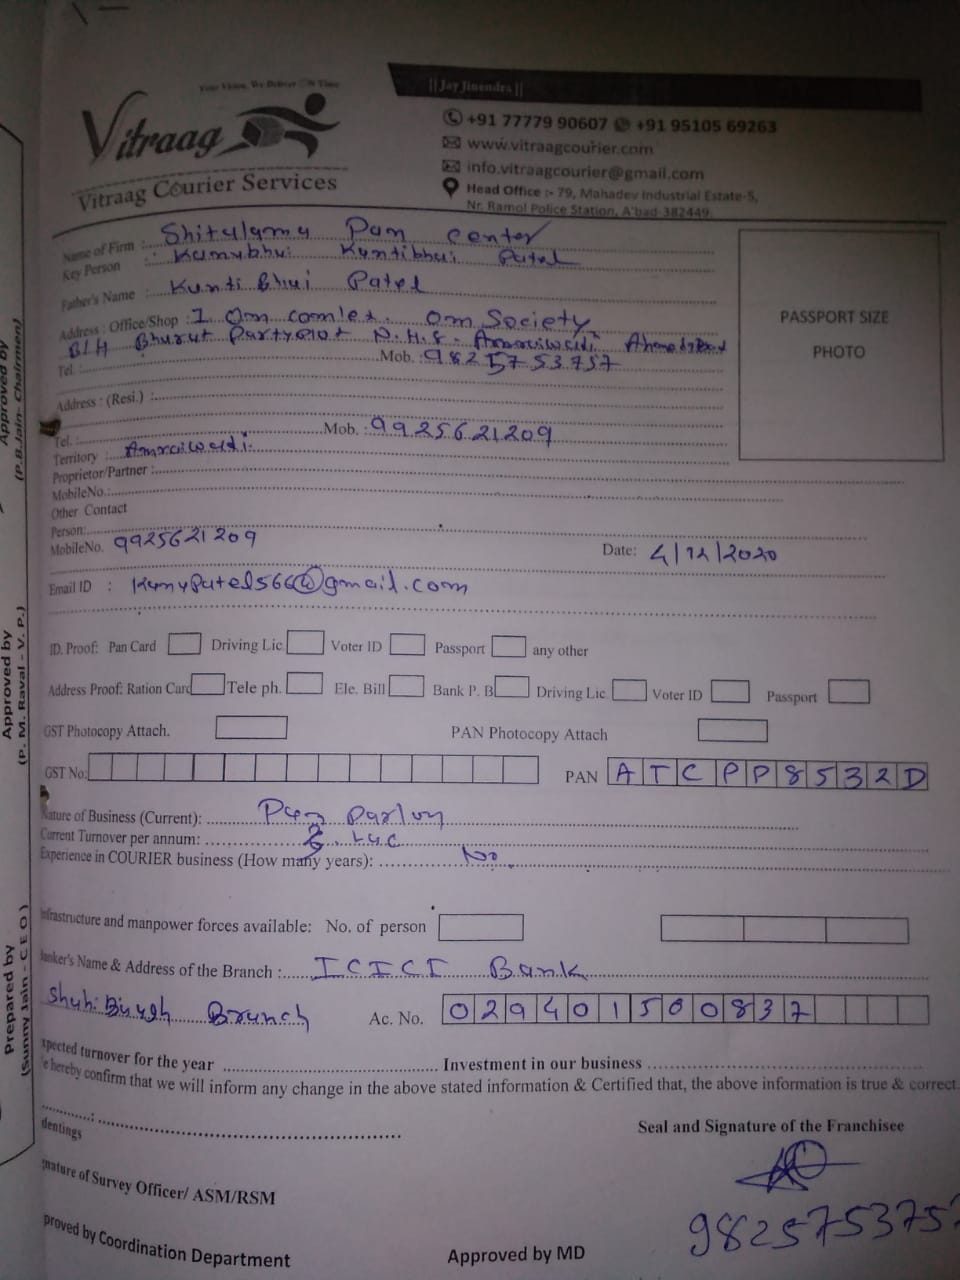 Your Vision, We Deliver ON Time
|| Jay Jinendra ||
Vitraag
Vitraag Courier Services
+91 77779 90607 +91 95105 69263
www.vitraagcourier.com
info.vitraagcourier@gmail.com
Head Office :- 79, Mahadev Industrial Estate-5,
Nr. Ramol Police Station, A'bad-382449
Name of Firm : Shitulamu Pan Center
Key Person : Kunubhui Kuntibhui Patel
Father's Name : Kunti Bhui Patel
Address : Office/Shop : 1 Om comlex. Om Society
B/H Bhurut Partyplot N.H.8. Amraiwadi Ahmedabad
Tel. : Mob. : 9825753757
PASSPORT SIZE
PHOTO
Address : (Resi.) :
Tel. : Mob. : 9925621209
Territory : Amraiwadi
Proprietor/Partner :
MobileNo.:
Other Contact
Person:
MobileNo. 9925621209 Date: 4/12/2020
Email ID : @gmail.com
ID. Proof: Pan Card Driving Lic Voter ID Passport any other
Address Proof: Ration Card Tele ph. Ele. Bill Bank P. B Driving Lic Voter ID Passport
GST Photocopy Attach. PAN Photocopy Attach
GST No: PAN ATCPP8532D
Nature of Business (Current): Pan Parlour
Current Turnover per annum: 2. Luc
Experience in COURIER business (How many years): No
Infrastructure and manpower forces available: No. of person
Banker's Name & Address of the Branch : ICICI Bank
Branch Ac. No. 029401500837
xpected turnover for the year Investment in our business
e hereby confirm that we will inform any change in the above stated information & Certified that, the above information is true & correct.
dentings
Seal and Signature of the Franchisee
gnature of Survey Officer/ ASM/RSM
982575375
proved by Coordination Department Approved by MD
Approved by
(P.B.Jain- Chairmen)
Approved by
(P. M. Raval - V. P.)
Prepared by
(Sunny Jain - C E O)